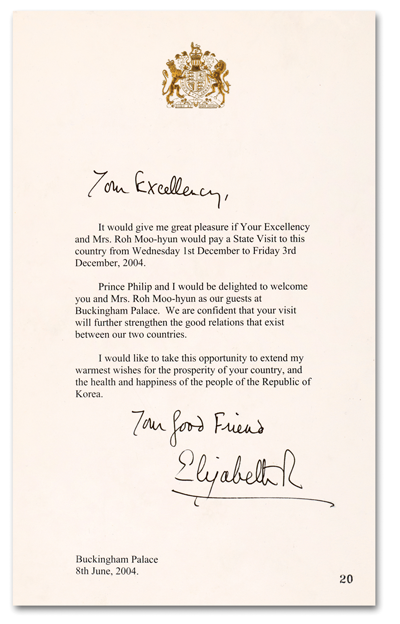 Your Excellency,
It would give me great pleasure if Your Excellency
and Mrs. Roh Moo-hyun would pay a State Visit to this
country from Wednesday 1st December to Friday 3rd
December, 2004.
Prince Philip and I would be delighted to welcome
you and Mrs. Roh Moo-hyun as our guests at
Buckingham Palace. We are confident that your visit
will further strengthen the good relations that exist
between our two countries.
I would like to take this opportunity to extend my
warmest wishes for the prosperity of your country, and
the health and happiness of the people of the Republic of
Korea.
Your Good Friend
Elizabeth R
Buckingham Palace
8th June, 2004.
20